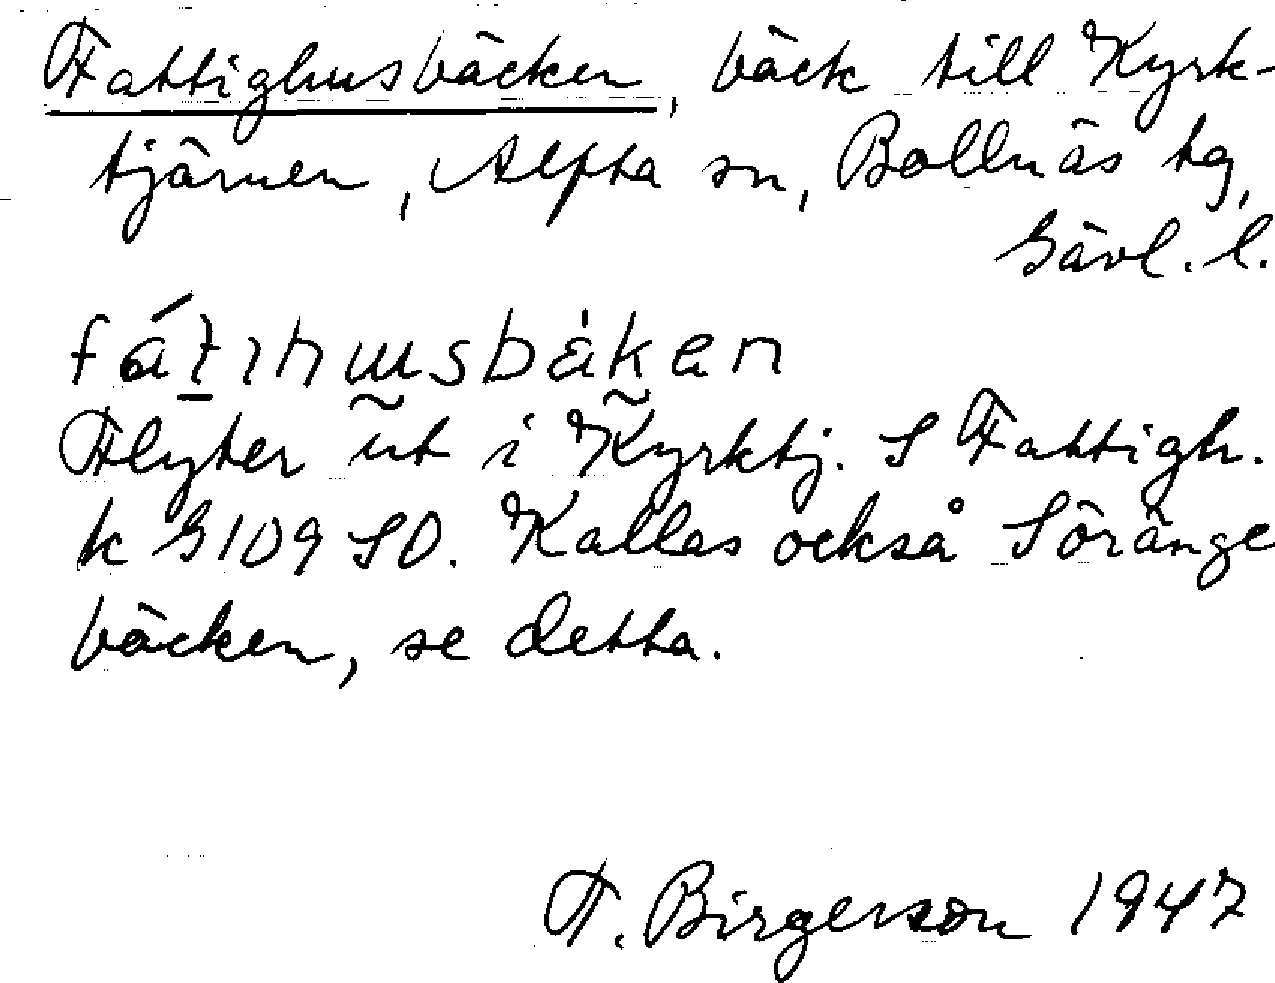 Fattighusbäcken, bäck till Kyrk-
tjärnen, Alfta sn, Bollnäs tg,
Gävl. l.
Flyter ut i Kyrktj. S Fattigh.
k G109 SO. Kallas också Söränge
bäcken, se detta.
F. Birgerson 1947